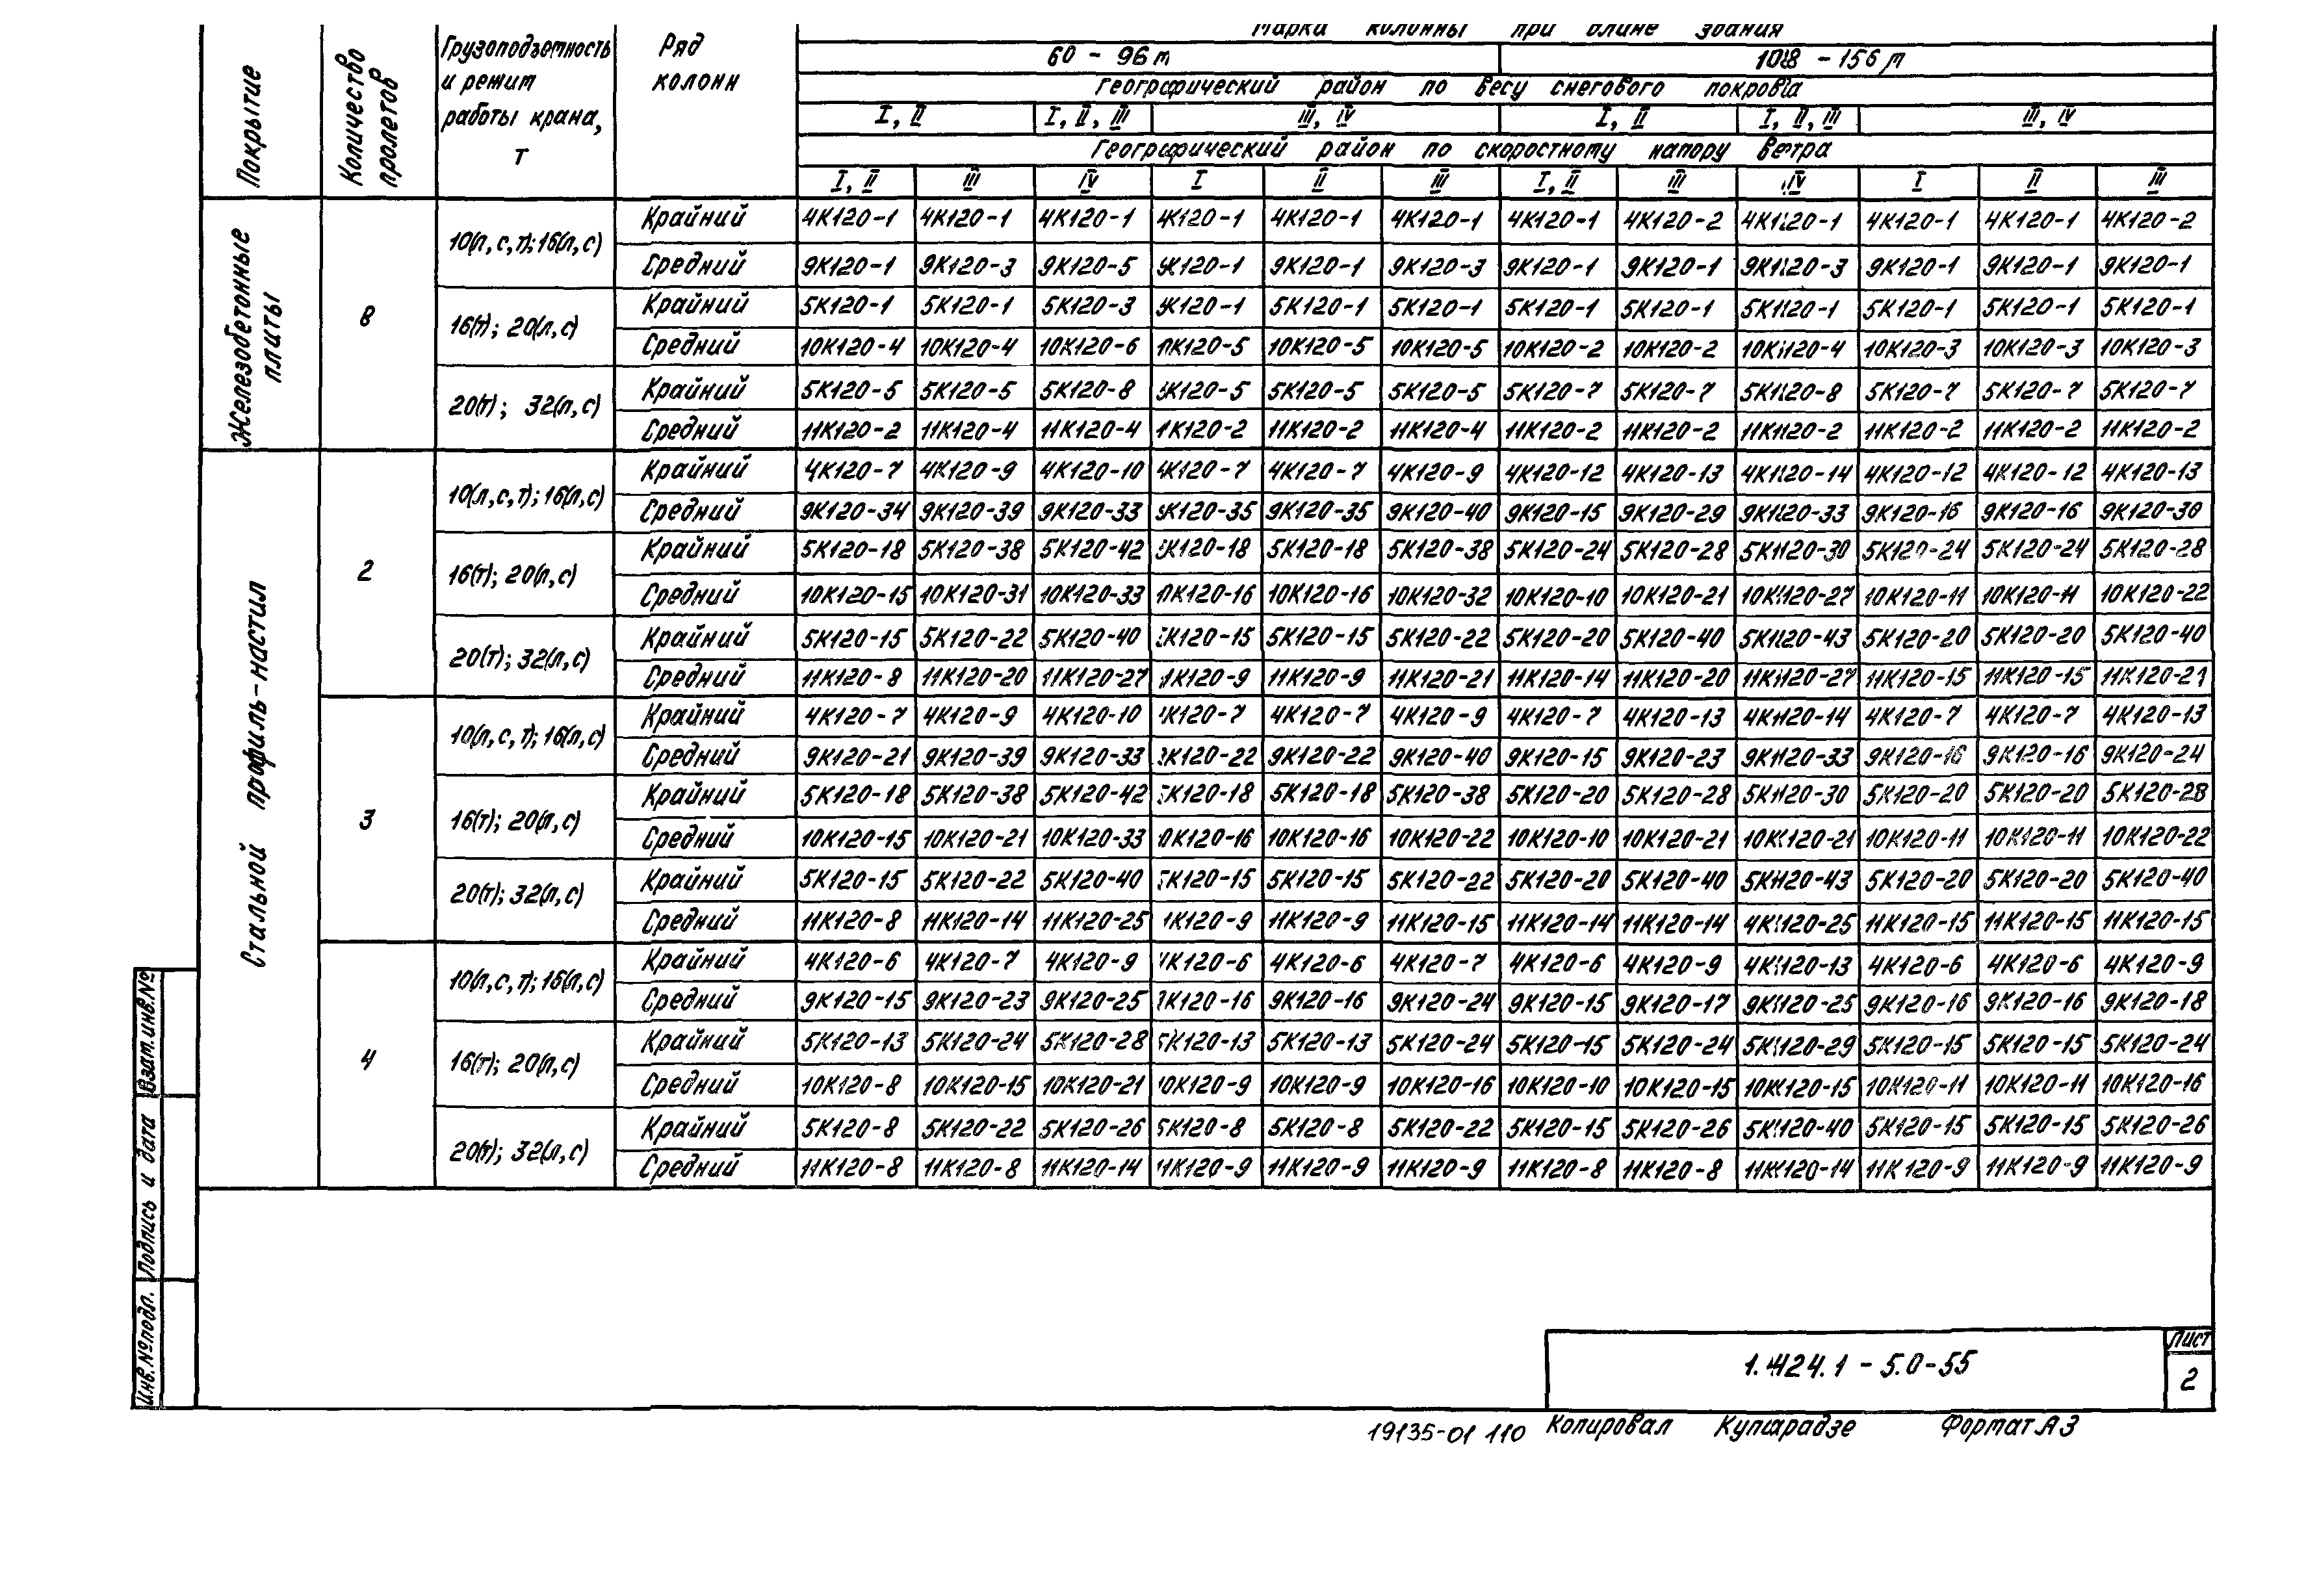 Марка колонны при длине здания
Покрытие
Количество пролетов
Грузоподъемность и режим работы крана, т
Ряд колонн
60 - 96 м 108 - 156 м
Географический район по весу снегового покрова
I, II I, II, III III, IV I, II I, II, III III, IV
Географический район по скоростному напору ветра
I, II III IV I II III I, II III IV I II III
Железобетонные плиты
8
10(л,с,т); 16(л,с)
Крайний 4К120-1 4К120-1 4К120-1 4К120-1 4К120-1 4К120-1 4К120-1 4К120-2 4К120-1 4К120-1 4К120-1 4К120-2
Средний 9К120-1 9К120-3 9К120-5 9К120-1 9К120-1 9К120-3 9К120-1 9К120-1 9К120-3 9К120-1 9К120-1 9К120-1
16(т); 20(л,с)
Крайний 5К120-1 5К120-1 5К120-3 5К120-1 5К120-1 5К120-1 5К120-1 5К120-1 5К120-1 5К120-1 5К120-1 5К120-1
Средний 10К120-4 10К120-4 10К120-6 10К120-5 10К120-5 10К120-5 10К120-2 10К120-2 10К120-4 10К120-3 10К120-3 10К120-3
20(т); 32(л,с)
Крайний 5К120-5 5К120-5 5К120-8 5К120-5 5К120-5 5К120-5 5К120-7 5К120-7 5К120-8 5К120-7 5К120-7 5К120-7
Средний 11К120-2 11К120-4 11К120-4 11К120-2 11К120-2 11К120-4 11К120-2 11К120-2 11К120-2 11К120-2 11К120-2 11К120-2
Стальной профиль-настил
2
10(л,с,т); 16(л,с)
Крайний 4К120-7 4К120-9 4К120-10 4К120-7 4К120-7 4К120-9 4К120-12 4К120-13 4К120-14 4К120-12 4К120-12 4К120-13
Средний 9К120-34 9К120-39 9К120-33 9К120-35 9К120-35 9К120-40 9К120-15 9К120-29 9К120-33 9К120-16 9К120-16 9К120-30
16(т); 20(л,с)
Крайний 5К120-18 5К120-38 5К120-42 5К120-18 5К120-18 5К120-38 5К120-24 5К120-28 5К120-30 5К120-24 5К120-24 5К120-28
Средний 10К120-15 10К120-31 10К120-33 10К120-16 10К120-16 10К120-32 10К120-10 10К120-21 10К120-27 10К120-11 10К120-11 10К120-22
20(т); 32(л,с)
Крайний 5К120-15 5К120-22 5К120-40 5К120-15 5К120-15 5К120-22 5К120-20 5К120-40 5К120-43 5К120-20 5К120-20 5К120-40
Средний 11К120-8 11К120-20 11К120-27 11К120-9 11К120-9 11К120-21 11К120-14 11К120-20 11К120-27 11К120-15 11К120-15 11К120-21
3
10(л,с,т); 16(л,с)
Крайний 4К120-7 4К120-9 4К120-10 4К120-7 4К120-7 4К120-9 4К120-7 4К120-13 4К120-14 4К120-7 4К120-7 4К120-13
Средний 9К120-21 9К120-39 9К120-33 9К120-22 9К120-22 9К120-40 9К120-15 9К120-23 9К120-33 9К120-16 9К120-16 9К120-24
16(т); 20(л,с)
Крайний 5К120-18 5К120-38 5К120-42 5К120-18 5К120-18 5К120-38 5К120-20 5К120-28 5К120-30 5К120-20 5К120-20 5К120-28
Средний 10К120-15 10К120-21 10К120-33 10К120-16 10К120-16 10К120-22 10К120-10 10К120-21 10К120-21 10К120-11 10К120-11 10К120-22
20(т); 32(л,с)
Крайний 5К120-15 5К120-22 5К120-40 5К120-15 5К120-15 5К120-22 5К120-20 5К120-40 5К120-43 5К120-20 5К120-20 5К120-40
Средний 11К120-8 11К120-14 11К120-25 11К120-9 11К120-9 11К120-15 11К120-14 11К120-14 4К120-25 11К120-15 11К120-15 11К120-15
4
10(л,с,т); 16(л,с)
Крайний 4К120-6 4К120-7 4К120-9 4К120-6 4К120-6 4К120-7 4К120-6 4К120-9 4К120-13 4К120-6 4К120-6 4К120-9
Средний 9К120-15 9К120-23 9К120-25 9К120-16 9К120-16 9К120-24 9К120-15 9К120-17 9К120-25 9К120-16 9К120-16 9К120-18
16(т); 20(л,с)
Крайний 5К120-13 5К120-24 5К120-28 5К120-13 5К120-13 5К120-24 5К120-15 5К120-24 5К120-29 5К120-15 5К120-15 5К120-24
Средний 10К120-8 10К120-15 10К120-21 10К120-9 10К120-9 10К120-16 10К120-10 10К120-15 10К120-15 10К120-11 10К120-11 10К120-16
20(т); 32(л,с)
Крайний 5К120-8 5К120-22 5К120-26 5К120-8 5К120-8 5К120-22 5К120-15 5К120-26 5К120-40 5К120-15 5К120-15 5К120-26
Средний 11К120-8 11К120-8 11К120-14 11К120-9 11К120-9 11К120-9 11К120-8 11К120-8 11К120-14 11К120-9 11К120-9 11К120-9
Взам.инв.№
Подпись и дата
Инв.№подл.
1.424.1 - 5.0-55
Лист
2
19135-01 110 Копировал Купарадзе Формат А3